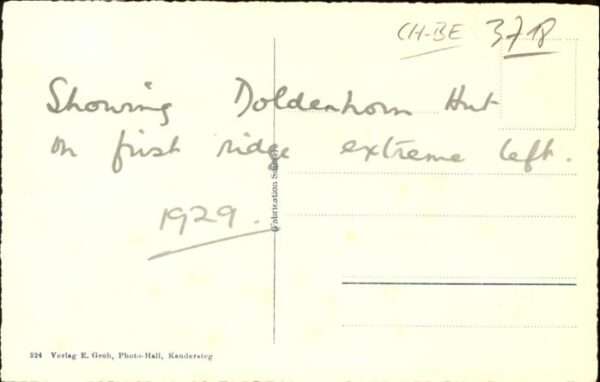 CH-BE 3718
Showing Doldenhorn Hut
on first ridge extreme left.
1929.
Fabrication
524 Verlag E. Groh, Photo-Hall, Kandersteg